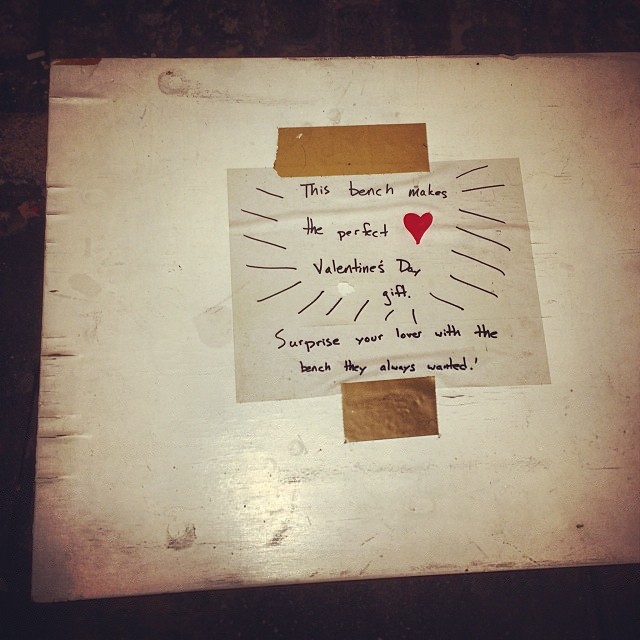 This bench makes
the perfect ♥
Valentine's Day
gift.
Surprise your lover with the
bench they always wanted!